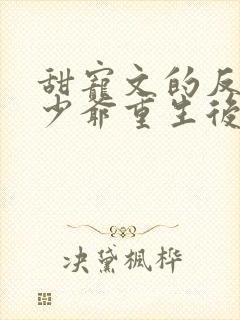 甜寵文的反
少爺重生後
决黛楓桦